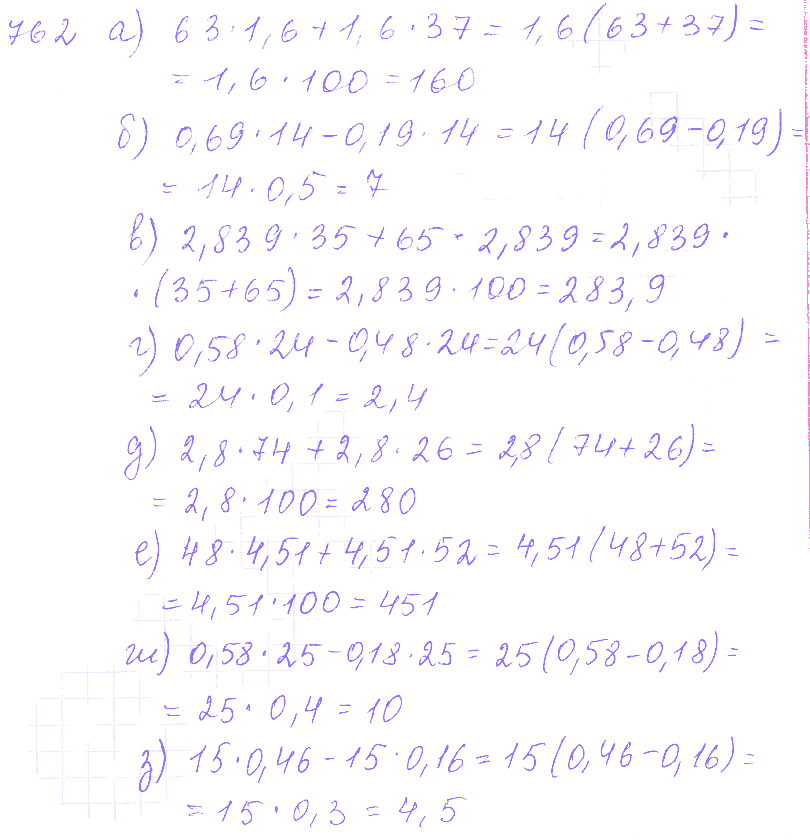 762 а) 63·1,6+1,6·37=1,6(63+37)=
=1,6·100=160
б) 0,69·14-0,19·14=14(0,69-0,19)=
=14·0,5=7
в) 2,839·35+65·2,839=2,839·
·(35+65)=2,839·100=283,9
г) 0,58·24-0,48·24=24(0,58-0,48)=
=24·0,1=2,4
д) 2,8·74+2,8·26=2,8(74+26)=
=2,8·100=280
е) 48·4,51+4,51·52=4,51(48+52)=
=4,51·100=451
ж) 0,58·25-0,18·25=25(0,58-0,18)=
=25·0,4=10
з) 15·0,46-15·0,16=15(0,46-0,16)=
=15·0,3=4,5